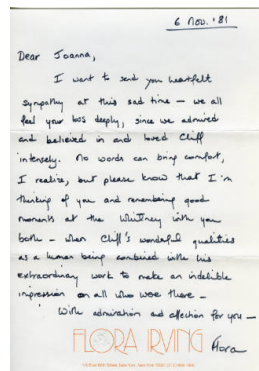 6 Nov. '81
Dear Joanna,
I want to send you heartfelt
sympathy at this sad time — we all
feel your loss deeply, since we admired
and believed in and loved Cliff
intensely. No words can bring comfort,
I realize, but please know that I'm
thinking of you and remembering good
moments at the Whitney with you
both — when Cliff's wonderful qualities
as a human being combined with his
extraordinary work to make an indelible
impression on all who were there —
With admiration and affection for you —
FLORA IRVING
Flora